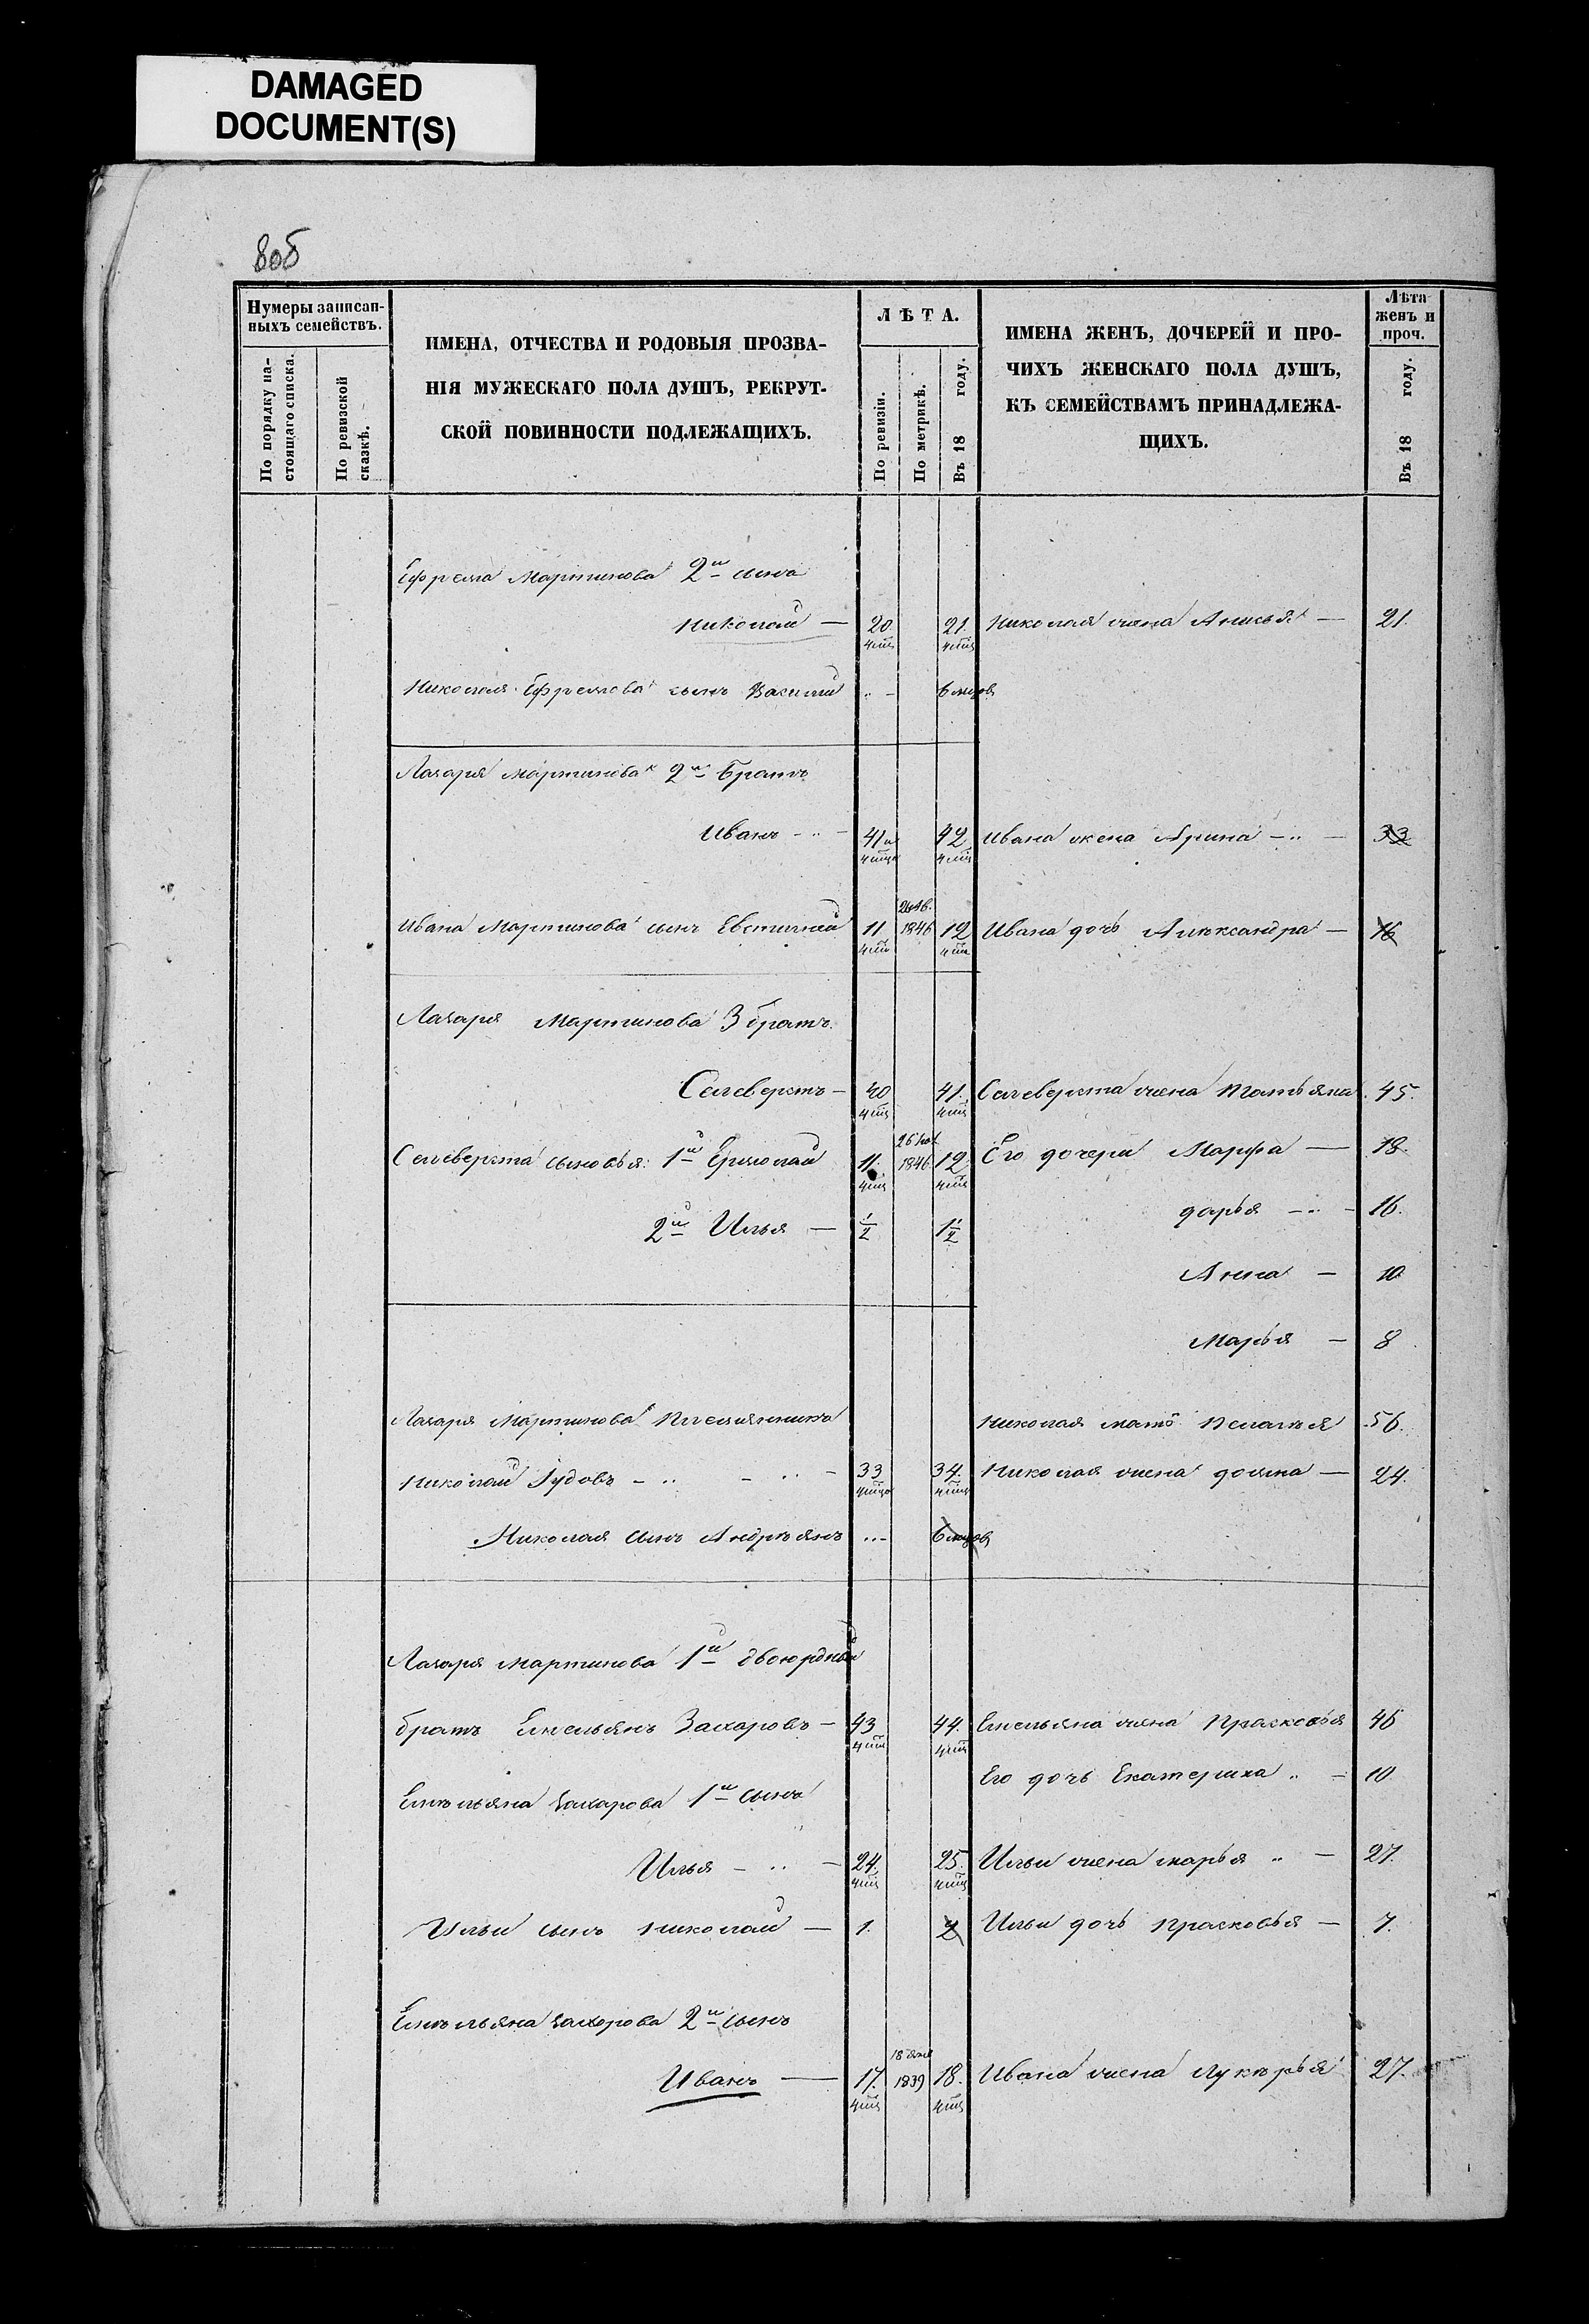 DAMAGED
DOCUMENT(S)
Нумеры записан-
ныхъ семействъ.
По порядку на-
стоящаго списка.
По ревизской
сказкѣ.
ИМЕНА, ОТЧЕСТВА И РОДОВЫЯ ПРОЗВА-
НІЯ МУЖЕСКАГО ПОЛА ДУШЪ, РЕКРУТ-
СКОЙ ПОВИННОСТИ ПОДЛЕЖАЩИХЪ.
ЛѢТА.
По ревизіи.
По метрикѣ.
Въ 18 году.
ИМЕНА ЖЕНЪ, ДОЧЕРЕЙ И ПРО-
ЧИХЪ ЖЕНСКАГО ПОЛА ДУШЪ,
КЪ СЕМЕЙСТВАМЪ ПРИНАДЛЕЖА-
ЩИХЪ.
Лѣта
женъ и
проч.
Въ 18 году.
Ефрема Мартинова 2й сынъ
Николай — 20 21. Николая жена Анисья — 21.
Николая Ефремова сынъ Василий 6 мцовъ
Лазаря Мартинова 2й братъ
Иванъ — 41 42 Ивана жена Арина — 33
Ивана Мартинова сынъ Евстигней 11 1846 12 Ивана дочь Александра — 16
Лазаря Мартинова 3 братъ
Селеверстъ — 40 41. Селеверста жена Татьяна 45.
Селеверста сыновья: 1й Ермолай 11. 1846 12 Его дочери Марфа — 18.
2й Илья — 1/2 1 1/2 дарья — 16.
Анна — 10
Марья — 8
Лазаря Мартинова племянникъ Николая мать Пелагея 56.
Николай Гудовъ — 33 34. Николая жена домна — 24.
Николая сынъ Андреянъ 6 мцовъ
Лазаря Мартинова 1й двоюрдный
братъ Емельянъ Захаровъ — 43 44. Емельяна жена Прасковья 46
Его дочь Екатерина — 10
Емельяна Захарова 1й сынъ
Илья — 24. 25. Ильи жена марья — 27.
Ильи сынъ николай — 1. 2 Ильи дочь прасковья — 7.
Емельяна Захарова 2й сынъ
Иванъ — 17. 1839 18. Ивана жена Лукерья 27.